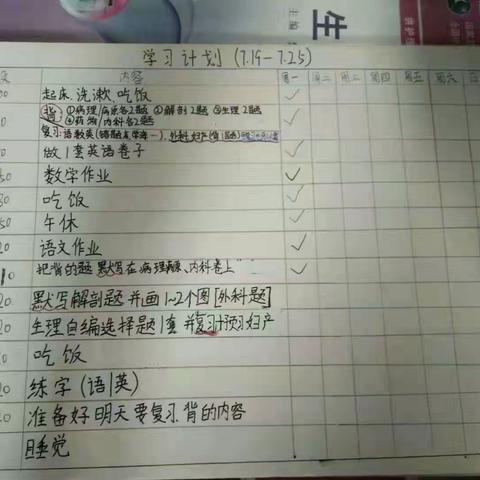 生
主编
学习计划(7.19-7.25)
内容 周一 周二 周三 周四 周五 周六 日
起床、洗漱、吃饭
背:①病理/病原各2题 ②解剖2题 ③生理2题
④药物/内科各2题
复习:语数英(错题
做1套英语卷子
数学作业
吃饭
午休
语文作业
把背的题默写在病理 内科卷上
默写解剖题并画1~2个图[外科题]
生理自编选择题1套并复习预习妇产
吃饭
练字(语|英)
准备好明天要复习背的内容
睡觉